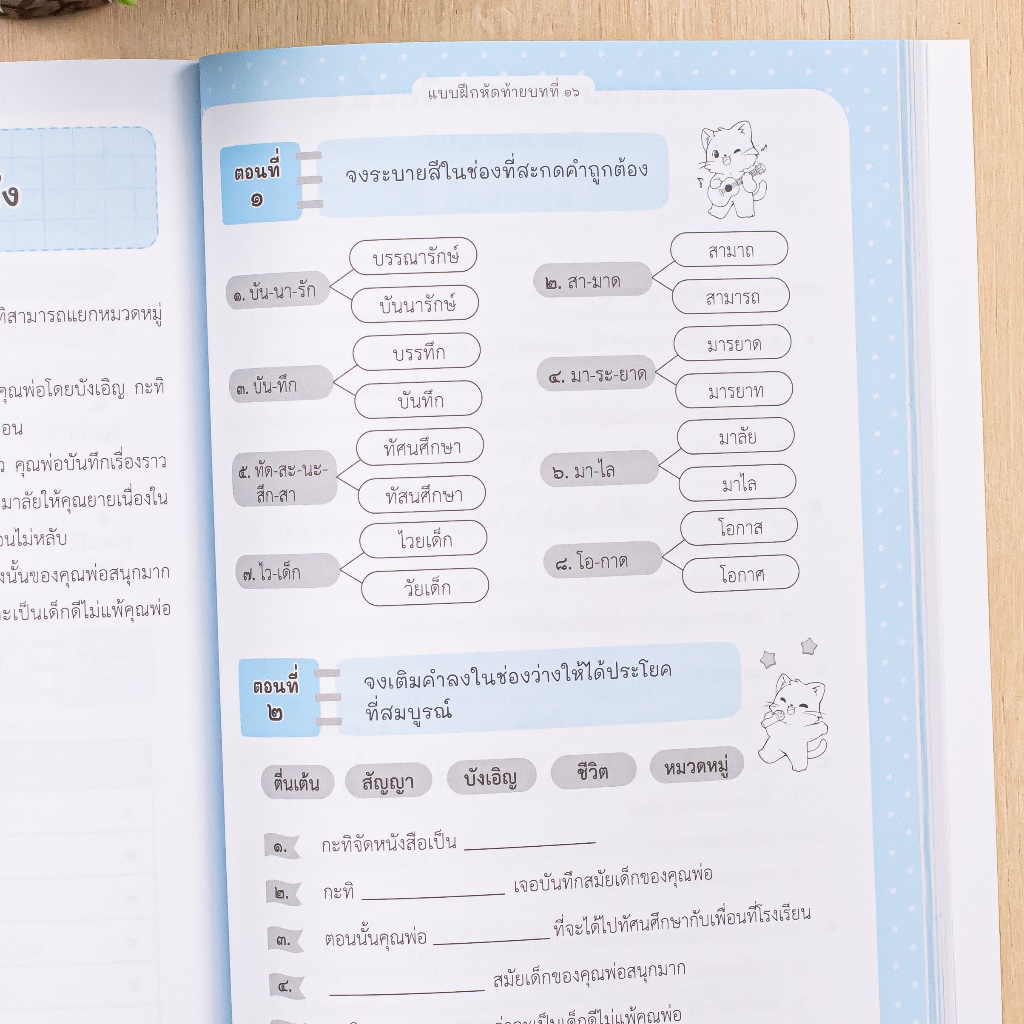 ที่สามารถแยกหมวดหมู่
คุณพ่อโดยบังเอิญ กะทิ
คุณพ่อบันทึกเรื่องราว
มาลัยให้คุณยายเนื่องใน
นอนไม่หลับ
นั้นของคุณพ่อสนุกมาก
จะเป็นเด็กดีไม่แพ้คุณพ่อ
แบบฝึกหัดท้ายบทที่ ๑๖
ตอนที่ ๑
จงระบายสีในช่องที่สะกดคำถูกต้อง
๑. บัน-นา-รัก
บรรณารักษ์
บันนารักษ์
๒. สา-มาด
สามาถ
สามารถ
๓. บัน-ทึก
บรรทึก
บันทึก
๔. มา-ระ-ยาด
มารยาด
มารยาท
๕. ทัด-สะ-นะ-
สึก-สา
ทัศนศึกษา
ทัสนศึกษา
๖. มา-ไล
มาลัย
มาไล
๗. ไว-เด็ก
ไวยเด็ก
วัยเด็ก
๘. โอ-กาด
โอกาส
โอกาศ
ตอนที่ ๒
จงเติมคำลงในช่องว่างให้ได้ประโยค
ที่สมบูรณ์
ตื่นเต้น สัญญา บังเอิญ ชีวิต หมวดหมู่
๑. กะทิจัดหนังสือเป็น
๒. กะทิ เจอบันทึกสมัยเด็กของคุณพ่อ
๓. ตอนนั้นคุณพ่อ ที่จะได้ไปทัศนศึกษากับเพื่อนที่โรงเรียน
๔. สมัยเด็กของคุณพ่อสนุกมาก
ว่าจะเป็นเด็กดีไม่แพ้คุณพ่อ